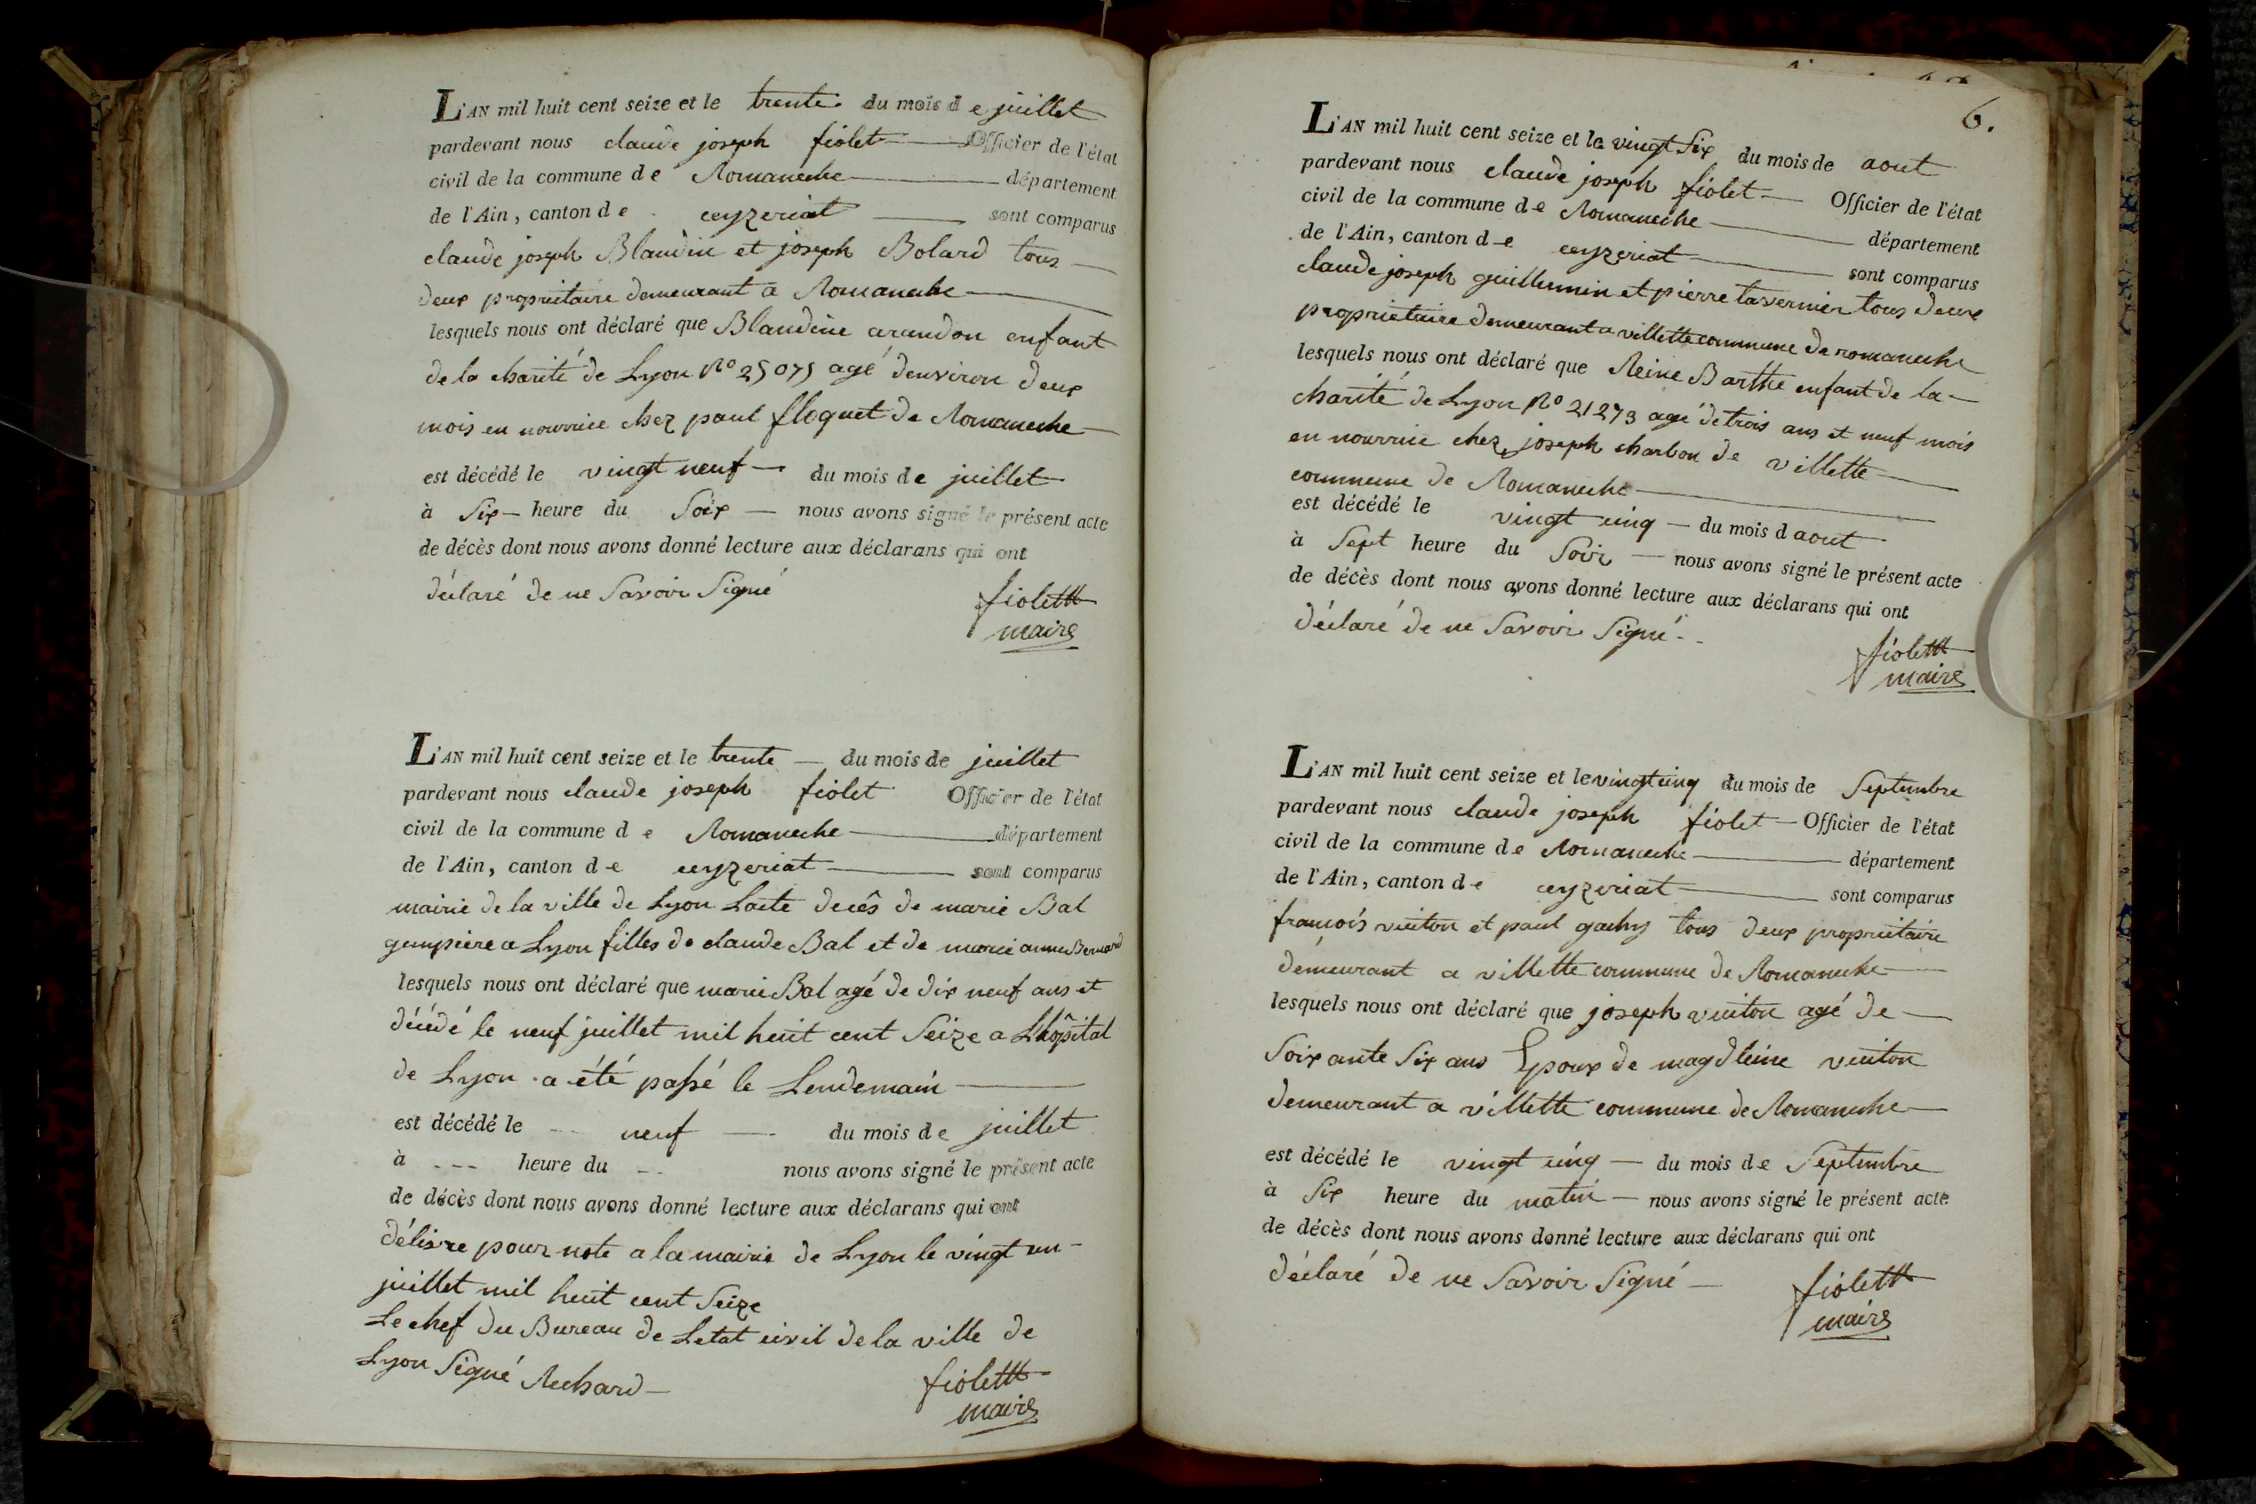 L'AN mil huit cent seize et le trente du mois de juillet
pardevant nous claude joseph fiolet Officier de l'état
civil de la commune de Romaneche département
de l'Ain, canton de ceyzeriat sont comparus
claude joseph Blandin et joseph Bolard tous
deux propriétaire demeurant a Romaneche
lesquels nous ont déclaré que Blandine arandon enfant
de la charité de Lyon No 25075 agé denviron deux
mois en nourrice chez paul floquet de Romaneche
est décédé le vingt neuf du mois de juillet
à Six heure du Soir nous avons signé le présent acte
de décès dont nous avons donné lecture aux déclarans qui ont
déclaré de ne Savoir Signé
fiolet
maire
L'AN mil huit cent seize et le trente du mois de juillet
pardevant nous claude joseph fiolet Officier de l'état
civil de la commune de Romaneche département
de l'Ain, canton de ceyzeriat sont comparus
mairie de la ville de Lyon Lacte decês de marie Bal
gimpiere a Lyon filles de claude Bal et de marie anne Bernard
lesquels nous ont déclaré que marie Bal agé de dix neuf ans et
décédé le neuf juillet mil huit cent Seize a Lhôpital
de Lyon a été passé le Lendemain
est décédé le neuf du mois de juillet
à --- heure du -- nous avons signé le présent acte
de décès dont nous avons donné lecture aux déclarans qui ont
délivre pour note a la mairie de Lyon le vingt un
juillet mil huit cent Seize
Le chef du Bureau de Letat civil de la ville de
Lyon Signé Rechard
fiolet
maire
6.
L'AN mil huit cent seize et le vingt Six du mois de aout
pardevant nous claude joseph fiolet Officier de l'état
civil de la commune de Romaneche département
de l'Ain, canton de ceyzeriat sont comparus
claude joseph guillermin et pierre tavernier tous deux
propriétaire demeurant a villette commune de romaneche
lesquels nous ont déclaré que Reine Barthe enfant de la
charité de Lyon No 21273 agé de trois ans et neuf mois
en nourrice chez joseph charbon de villette
commune de Romaneche
est décédé le vingt cinq du mois d aout
à Sept heure du Soir nous avons signé le présent acte
de décès dont nous avons donné lecture aux déclarans qui ont
déclaré de ne Savoir Signé
fiolet
maire
L'AN mil huit cent seize et le vingt cinq du mois de Septembre
pardevant nous claude joseph fiolet Officier de l'état
civil de la commune de Romaneche département
de l'Ain, canton de ceyzeriat sont comparus
francois vuiton et paul gachy tous deux propriétaire
demeurant a villette commune de Romaneche
lesquels nous ont déclaré que joseph vuiton agé de
Soixante Six ans Epoux de magdleine vuiton
demeurant a villette commune de Romaneche
est décédé le vingt cinq du mois de Septembre
à Six heure du matin nous avons signé le présent acte
de décès dont nous avons donné lecture aux déclarans qui ont
déclaré de ne Savoir Signé
fiolet
maire